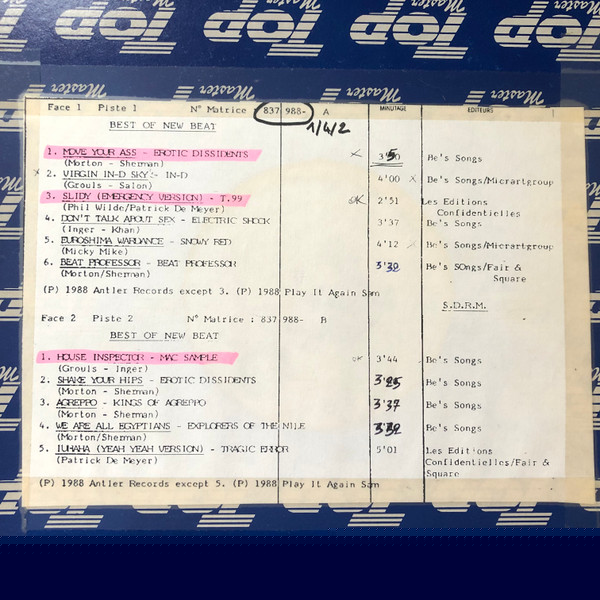 Master
TOP
Face 1 Piste 1 N° Matrice : 837 988- A MINUTAGE EDITEURS
1/4/2
BEST OF NEW BEAT
1. MOVE YOUR ASS - EROTIC DISSIDENTS Be's Songs
(Morton - Sherman)
2. VIRGIN IN-D SKY - IN-D 4'00 x Be's Songs/Micrartgroup
(Grouls - Salon)
3. SLIDY (EMERGENCY VERSION) - T.99 OK 2'51 Les Editions
(Phil Wilde/Patrick De Meyer) Confidentielles
4. DON'T TALK ABOUT SEX - ELECTRIC SHOCK 3'37 Be's Songs
(Inger - Khan)
5. EUROSHIMA WARDANCE - SNOWY RED 4'12 Be's Songs/Micrartgroup
(Micky Mike)
6. BEAT PROFESSOR - BEAT PROFESSOR Be's SOngs/Fair &
(Morton/Sherman) Square
(P) 1988 Antler Records except 3. (P) 1988 Play It Again Sam
S.D.R.M.
Face 2 Piste 2 N° Matrice : 837 988- B
BEST OF NEW BEAT
1. HOUSE INSPECTOR - MAC SAMPLE OK 3'44 Be's Songs
(Grouls - Inger)
2. SHAKE YOUR HIPS - EROTIC DISSIDENTS Be's Songs
(Morton - Sherman)
3. AGREPPO - KINGS OF AGREPPO 3'37 Be's Songs
(Morton - Sherman)
4. WE ARE ALL EGYPTIANS - EXPLORERS OF THE NILE Be's Songs
(Morton/Sherman)
5. IUHAHA (YEAH YEAH VERSION) - TRAGIC ERROR 5'01 Les Editions
(Patrick De Meyer) Confidentielles/Fair &
Square
(P) 1988 Antler Records except 5. (P) 1988 Play It Again Sam